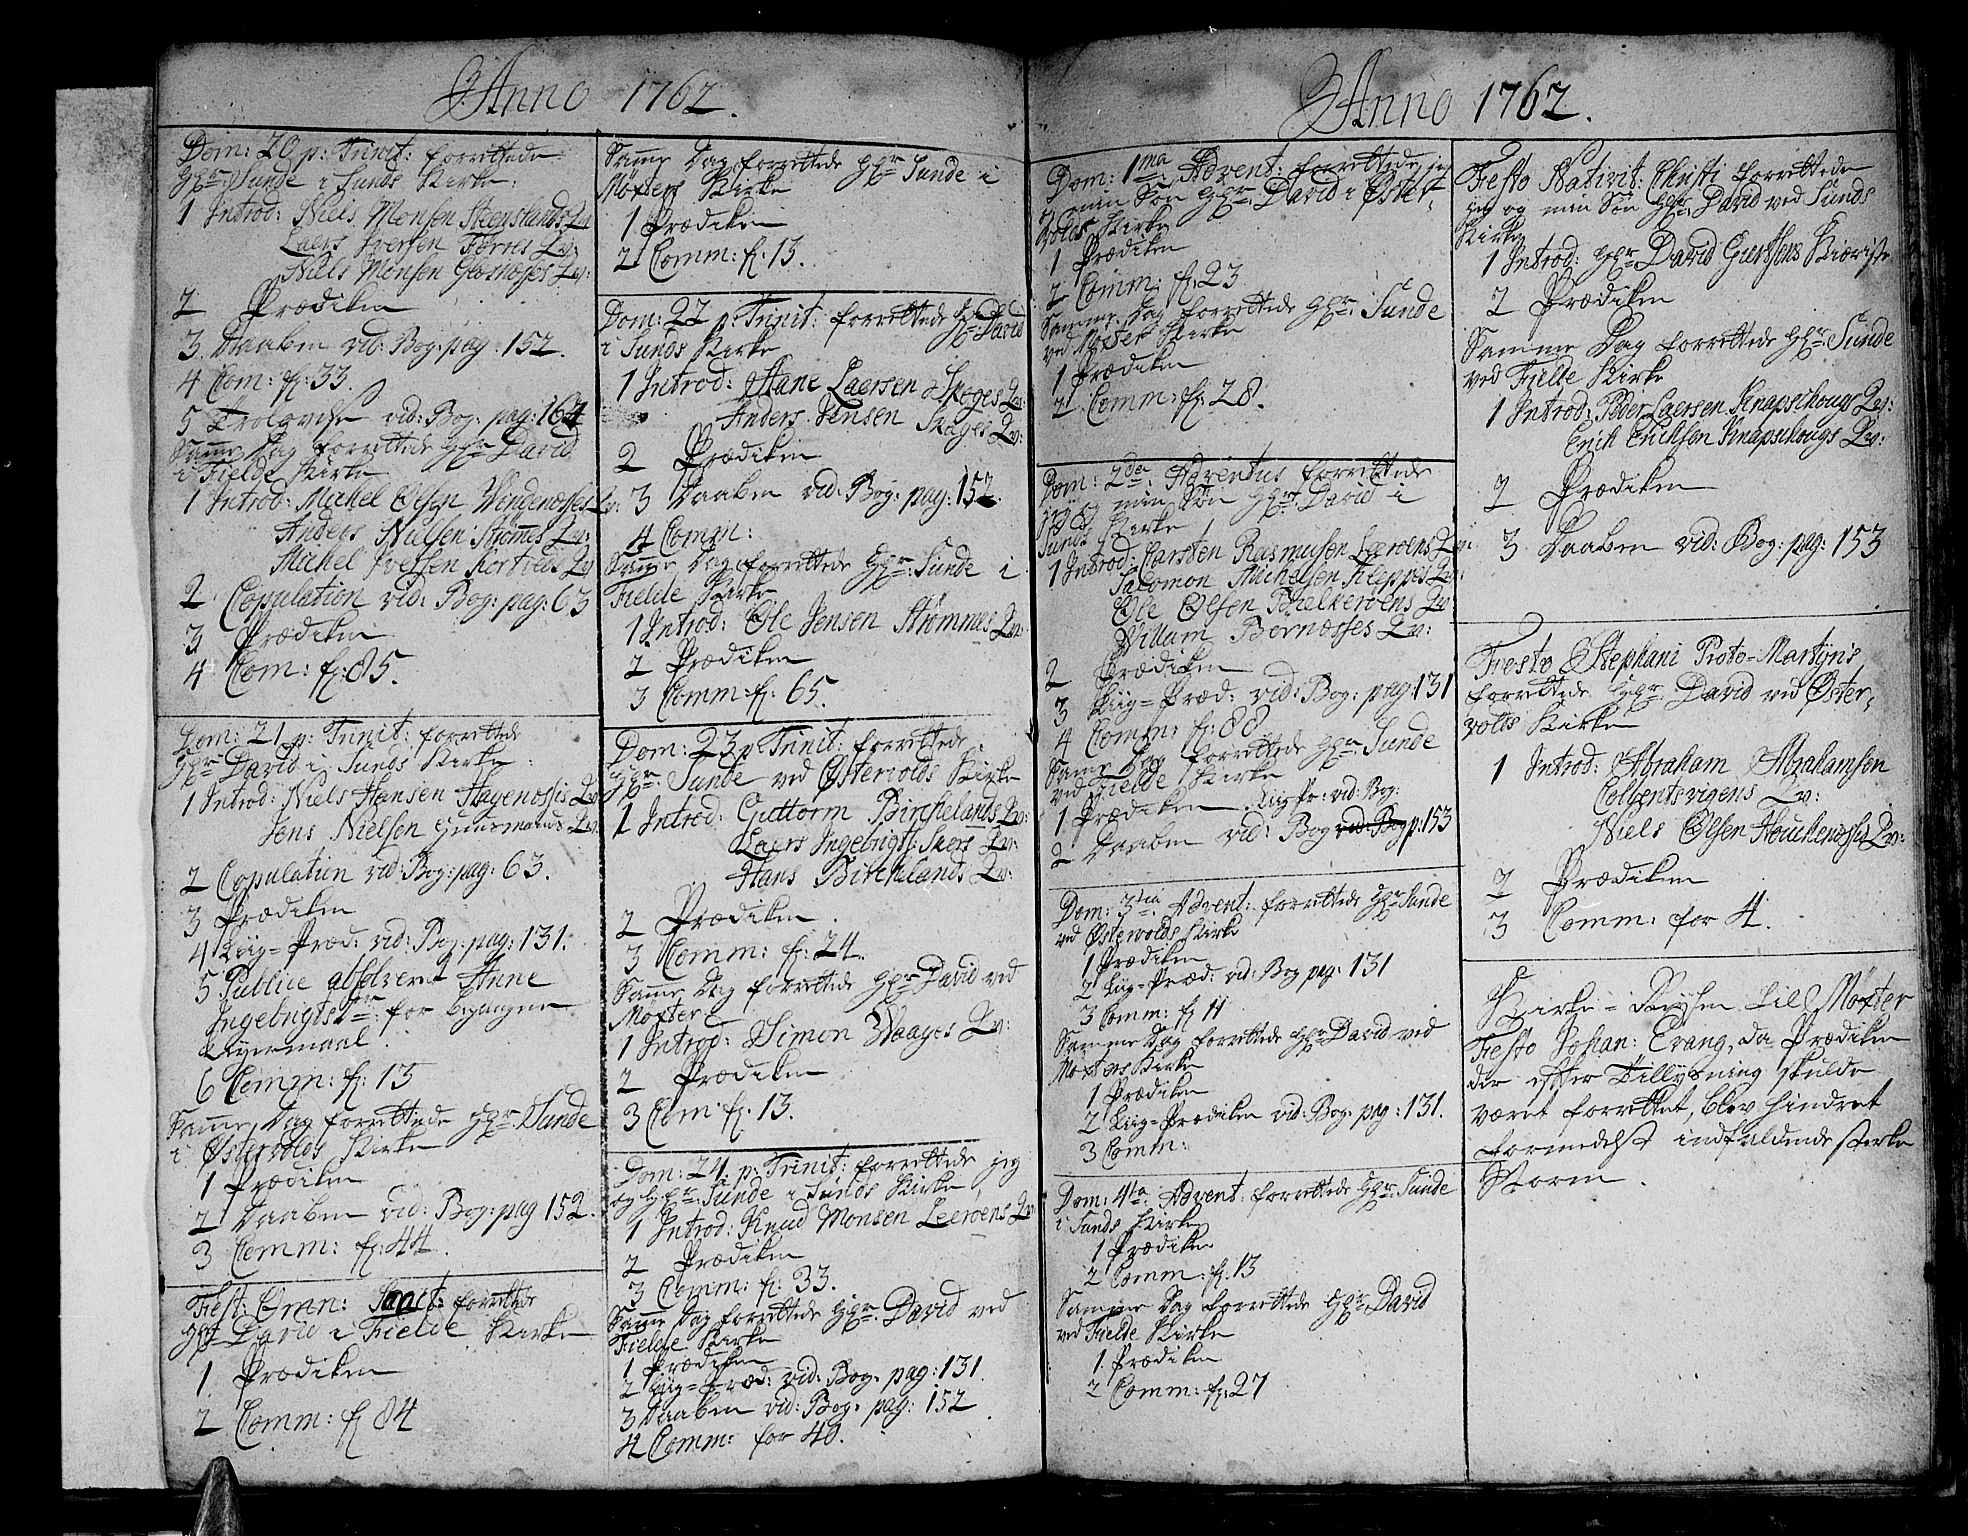 Anno 1762.
Dom: 20 p: Trinit: forrettede
Hr: Sunde i Sunds Kirke.
1 Introd: Niels Monsen Steenslands Qv:
Laers Iversen Førres Qv:
Niels Monsen Qv:
2 Prædiken
3 Daaben vid: Bog: pag: 152.
4 Com: f: 33.
5 Trolovelse vid: Bog: pag: 164
Samme Dag forrettede Hr: David
i Fielde Kirke
1 Introd: Michel Olsen Vindenæsses Qv:
Anders Nielsen Strømes Qv:
Michel Iversen Qv:
2 Copulation vid: Bog: pag: 63
3 Prædiken
4 Com: f: 85.
Dom: 21 p: Trinit: forrettede
Hr: David i Sunds Kirke
1 Introd: Niels Hansen Hagenæssis Qv:
Jens Nielsen Qv:
2 Copulation vid: Bog: pag: 63.
3 Prædiken
4 Liig-Præd: vid: Bog: pag: 131.
5 Publice absolveret Anne
Ingebrigts Dr: for begangne
Leyermaal.
6 Comm: f: 13
Samme Dag forrettede Hr: Sunde
i Østervolds Kirke
1 Prædiken
2 Daaben vid: Bog: pag 152.
3 Comm: f: 44.
Fest: Omn: Sanct: forrettede
Hr: David i Fielde Kirke
1 Prædiken
2 Comm: f 84
Samme Dag forrettede Hr: Sunde i
Møxters Kirke
1 Prædiken
2 Comm: f: 13.
Dom: 22 p: Trinit: forrettede Hr: David
i Sunds Kirke
1 Introd: Hane Laersen Skoges Qv:
Anders Jensen Skoges Qv:
2 Prædiken
3 Daaben vid: Bog: pag: 152.
4 Comm:
Samme Dag forrettede Hr: Sunde i
Fielde Kirke
1 Introd: Ole Jensen Strømnes Qv:
2 Prædiken
3 Comm: f: 65.
Dom: 23 p Trinit: forrettede
Hr: Sunde ved Østervolds Kirke
1 Introd: Guttorm Birchelands Qv:
Laers Ingebrigts: Skers Qv:
Hans Birchelands Qv:
2 Prædiken
3 Comm: f: 24.
Samme Dag forrettede Hr: David ved
Møxter
1 Introd: Simon Waages Qv:
2 Prædiken
3 Com f: 13.
Dom: 24. p: Trinit: forrettede jeg
og Hr: Sunde i Sunds Kirke
1 Introd: Knud Monsen Leeroens Qv:
2 Prædiken
3 Comm: f: 33.
Samme Dag forrettede Hr: David ved
Fielde Kirke
1 Prædiken
2 Liig-Præd: vid: Bog: pag: 131
3 Daaben vid: Bog: pag: 152
4 Comm: for 40.
Anno 1762.
Dom: 1ma: Advent: forrettede jeg
og min Søn Hr: David i Øster-
volds Kirke
1 Prædiken
2 Comm: f: 23
Samme Dag forrettede Hr: Sunde
ved Møxter Kirke
1 Prædiken
2 Comm: f: 28.
Dom: 2da: Adventus forrettede
jeg og min Søn Hr: David i
Sunds Kirke
1 Introd: Carsten Rasmusen Leeroens Qv:
Salomon Michelsen Kleppes Qv:
Ole Olsen Bielkeroens Qv:
Willum Bernæsses Qv:
2 Prædiken
3 Liig-Præd: vid: Bog: pag: 131
4 Comm: f: 88
Samme Dag forrettede Hr: Sunde
ved Fielde Kirke
1 Prædiken Liig Pr: vid: Bog:
2 Daaben vid: Bog vid: Bog p: 153
Dom: 3tia: Advent: forrettede Hr: Sunde
ved Østervolds Kirke
1 Prædiken
2 Liig-Præd: vid: Bog pag: 131
3 Comm: f 11
Samme Dag forrettede Hr: David ved
Møxters Kirke
1 Prædiken
2 Liig-Prædiken vid: Bog: pag: 131.
3 Comm:
Dom: 4ta: Advent: forrettede Hr: Sunde
i Sunds Kirke
1 Prædiken
2 Comm: f: 13
Samme Dag forrettede Hr: David
ved Fielde Kirke
1 Prædiken
2 Comm: f: 27
Festo Nativit: Christi forrettede
jeg og min Søn Hr: David ved Sunds
Kirke
1 Introd: Hr: David Giertsens Kiæriste
2 Prædiken
Samme Dag forrettede Hr: Sunde
ved Fielde Kirke
1 Introd: Peder Laersen Knapschougs Qv:
Erich Erichsen Knapschougs Qv:
2 Prædiken
3 Daaben vid: Bog: pag: 153
Festo Stephani Proto-Martyris
forrettede Hr: David ved Øster-
volds Kirke
1 Introd: Abraham Abrahamsen
Qv:
Niels Olsen Houchenæssis Qv:
2 Prædiken
3 Comm: for 4.
Kirke-Reysen till Møxter
Festo Johan: Evang, da Prædiken
der efter Tillysning skulde
været forrettet, blev hindret
formedelst indfaldende sterke
Storm.